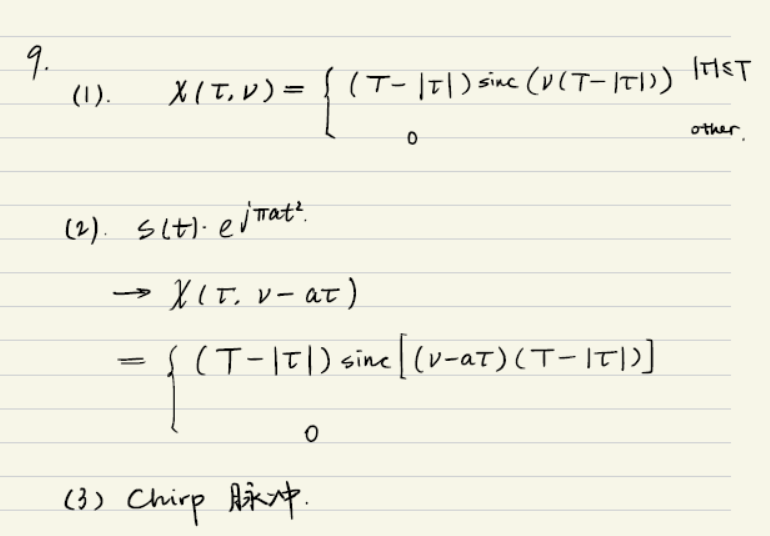 9.
(1). χ(τ, ν) = { (T - |τ|) sinc (ν(T - |τ|)) |τ| ≤ T
0 other.
(2). s(t)· e^{jπat²}.
→ χ(τ, ν - aτ)
= { (T - |τ|) sinc [(ν-aτ)(T - |τ|)]
0
(3) Chirp 脉冲.